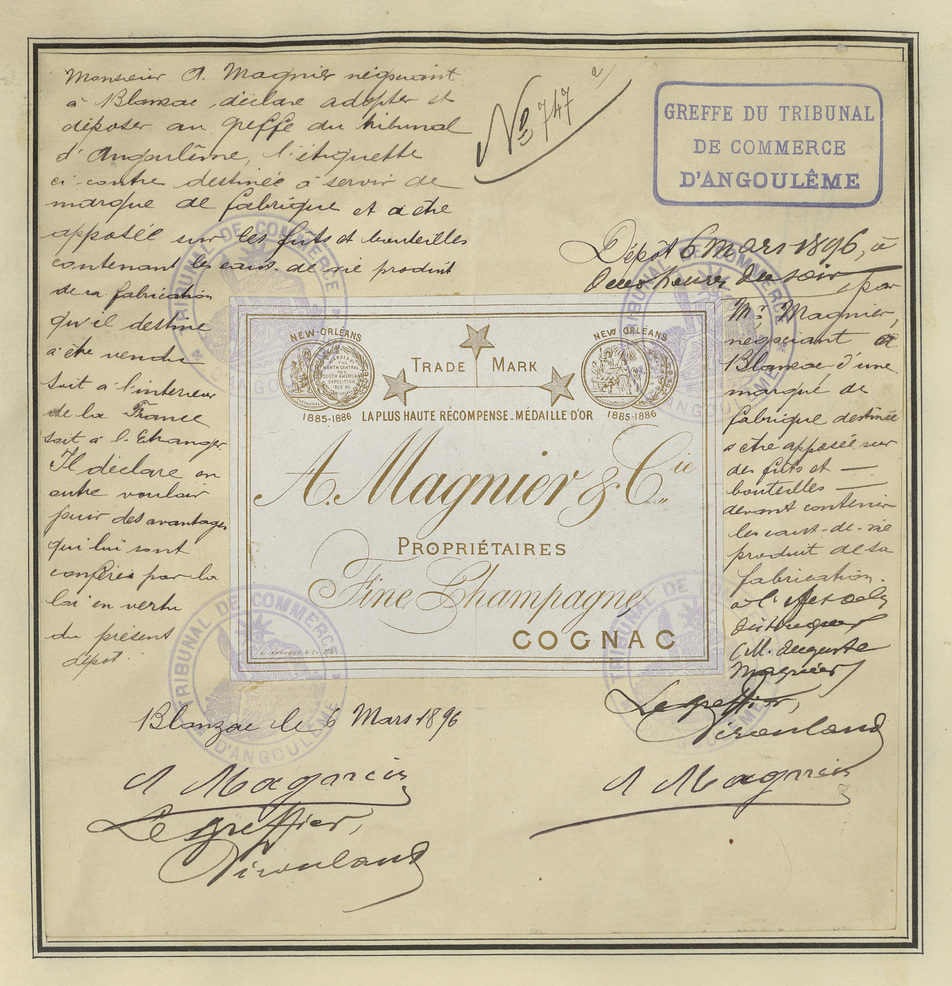 Monsieur A. Magnier négociant
à Blanzac, déclare adopter et
déposer au greffe du tribunal
d'Angoulême, l'étiquette
ci-contre destinée à servir de
marque de fabrique et a être
apposée sur les fûts et bouteilles
contenant les eaux-de-vie produit
de sa fabrication
qu'il destine
a être vendu
soit à l'interieur
de la France
soit à l'Etranger.
Il déclare en
outre vouloir
jouir des avantages
qui lui sont
conférés par la
loi en vertu
du présent
dépot.
Blanzac le 6 Mars 1896
A Magnier
Le greffier,
No 747
GREFFE DU TRIBUNAL
DE COMMERCE
D'ANGOULÊME
Dépôt 6 mars 1896, à
deux heures du soir, par
Mr. Magnier,
négociant à
Blanzac d'une
marque de
fabrique destinée
a être apposée sur
des fûts et —
bouteilles —
devant contenir
les eaux-de-vie
produit de sa
fabrication.
M. Auguste
Magnier
Le greffier,
A Magnier
NEW-ORLEANS
1885-1886
TRADE MARK
NEW-ORLEANS
1885-1886
LA PLUS HAUTE RÉCOMPENSE_MÉDAILLE D'OR
A. Magnier & Cie
PROPRIÉTAIRES
Fine Champagne
COGNAC
TRIBUNAL DE COMMERCE
D'ANGOULÊME
TRIBUNAL DE COMMERCE
D'ANGOULÊME
TRIBUNAL DE COMMERCE
D'ANGOULÊME
TRIBUNAL DE COMMERCE
D'ANGOULÊME